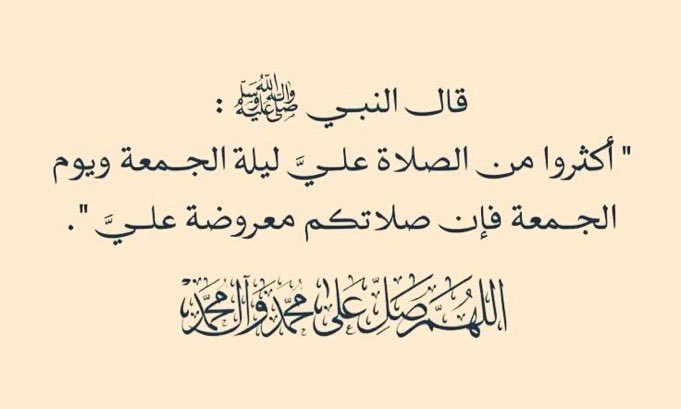 قال النبي ﷺ :
" أكثروا من الصلاة عليَّ ليلة الجمعة ويوم
الجمعة فإن صلاتكم معروضة عليَّ ".
اللهُمَّ صَلِّ عَلى مُحَمَّد وَآلِ مُحَمَّد